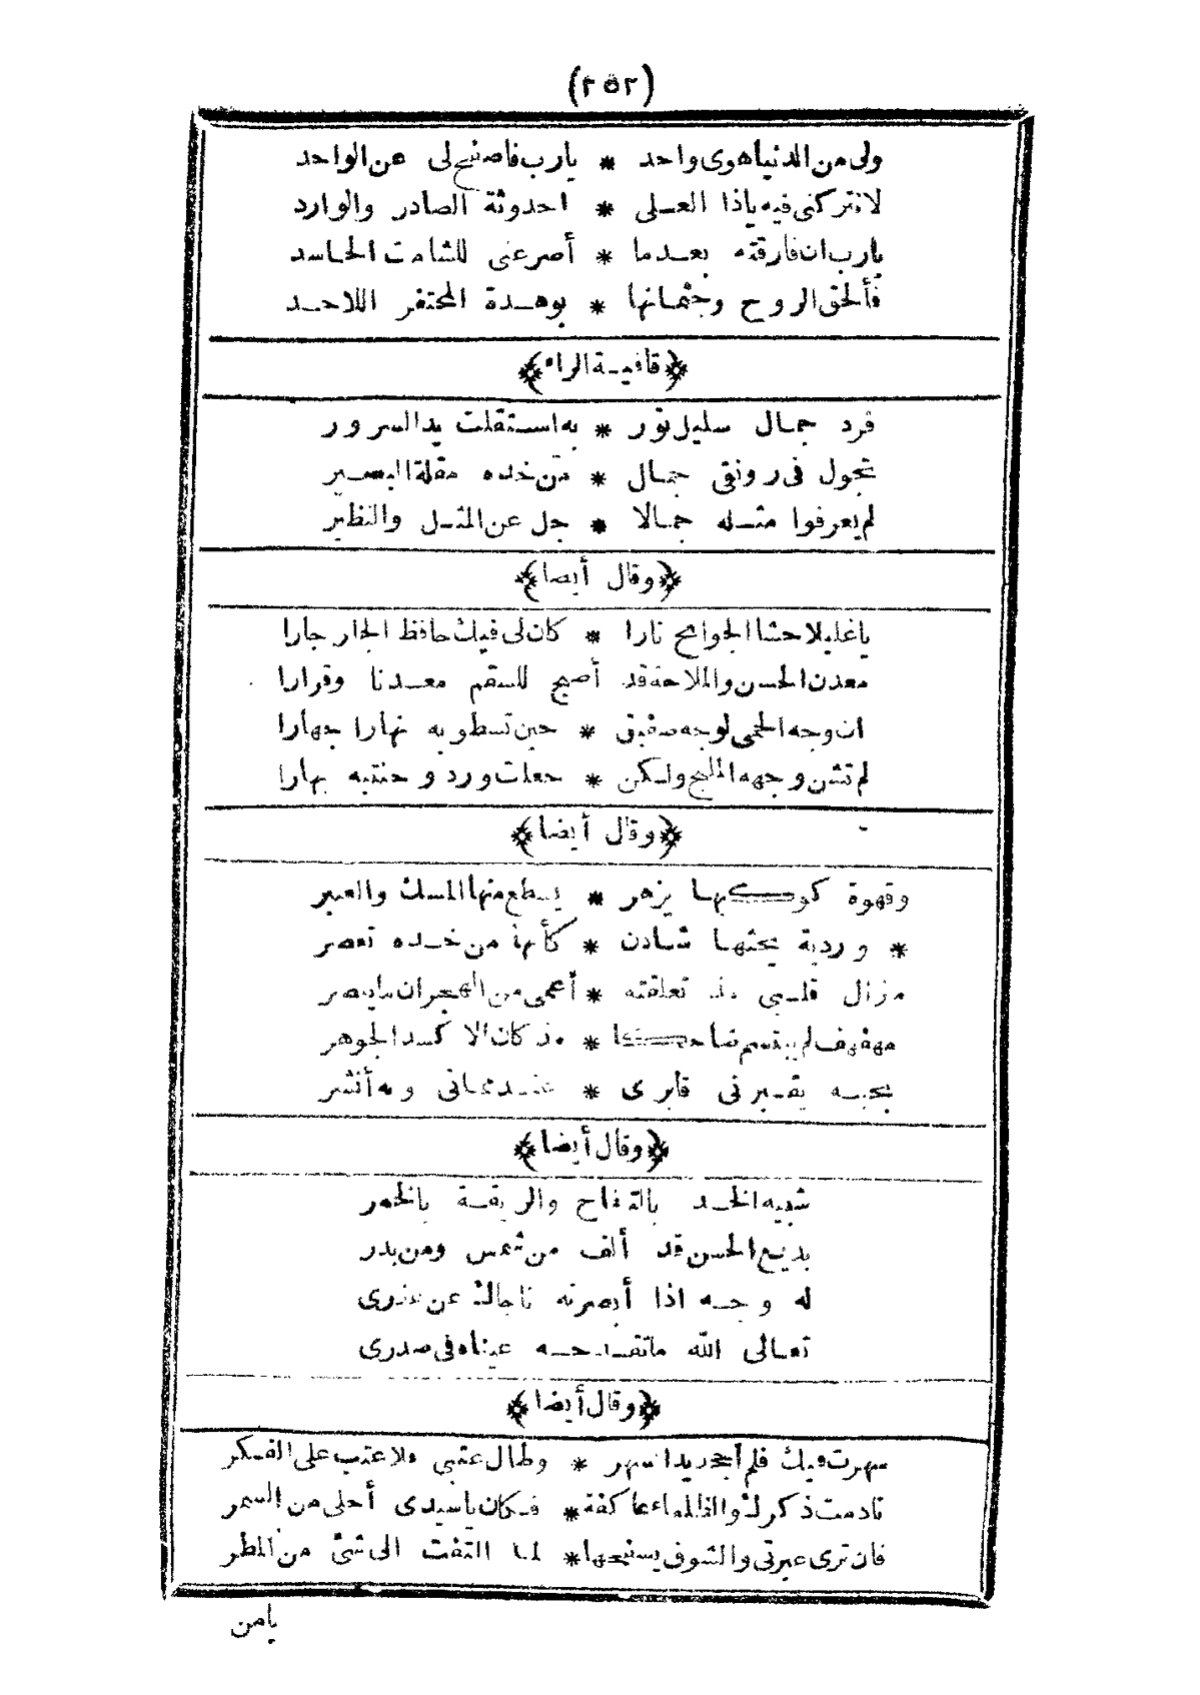 (٢٥٢)
ولى من الدنيا هوى واحد * يارب فاصفح لى عن الواحد
لا تتركنى فيه ياذا العلى * احدوثة الصادر والوارد
يارب ان فارقته بعدما * أصرعنى للشامت الحاسد
فألحق الروح وجثمانها * بوهدة المحتفر اللاحد
﴿قافية الراء﴾
فرد جمال سليل نور * به استقلت يد السرور
تجول فى رونقى جمال * من خده مقلة البصير
لم يعرفوا مثله جمالا * جل عن المثل والنظير
﴿وقال أيضا﴾
ياغليلا حشا الجوانح نارا * كان لى فيك حافظ الجار جارا
معدن الحسن والملاحة قد أصبح للسقم معدنا وقرارا
ان وجه الحمى لوجه صفيق * حين تسطو به نهارا جهارا
لم تشن وجهه المليح ولكن * جعلت ورد وجنتيه بهارا
﴿وقال أيضا﴾
وقهوة كوكبها يزهر * يسطع منها المسك والعنبر
* وردية يحثها شادن * كأنها من خده تعصر
مزال قلبى مذ تعلقته * أعمى من الهجران ما يبصر
مهفهف لم يبتسم ضاحكا * مذ كان الا كسد الجوهر
بحبه يقبرنى قابرى * عند مماتى وبه أنشر
﴿وقال أيضا﴾
شبيه الخد بالتفاح والريقة بالخمر
بديع الحسن قد ألف من شمس ومن بدر
له وجه اذا أبصرته ناجاك عن عذرى
تعالى الله ما تقدحه عيناه فى صدرى
﴿وقال أيضا﴾
سهرت فيك فلم أجحد يد السهر * وطال عتبى ولا عتب على الفكر
نادمت ذكرك والظلماء عاكفة * فكان ياسيدى أحلى من السمر
فان ترى عبرتى والشوق يسفحها * لما التفت الى شئ من المطر
يامن